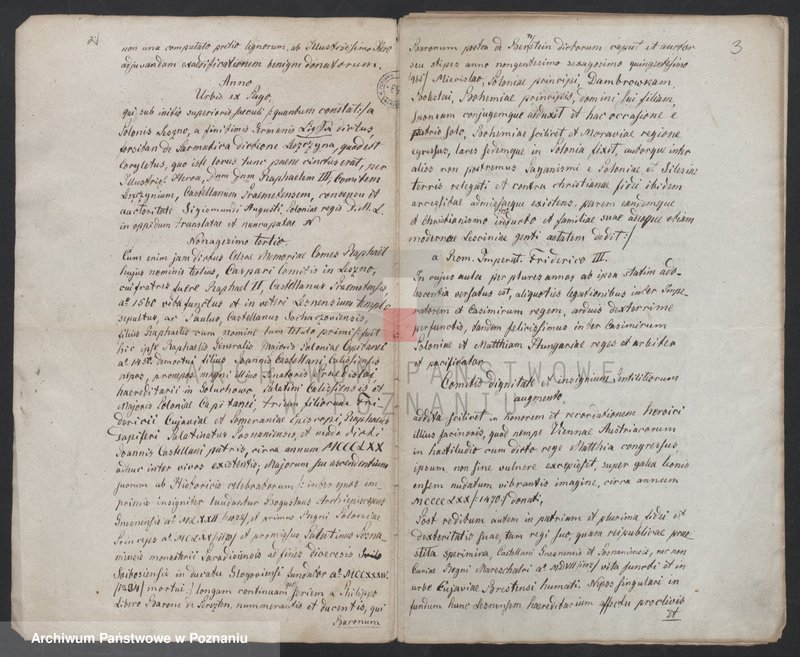 2
non una computato pretio lignorum, ab Illustrissimo Hero
adjuvandam exaedificationem benigne donatorum.
Anno
Urbis ex Pago,
qui, sub initio superioris saeculi /:quantum constat:/ a
Polonis Leszno, a finitimis Germanis Lissa dictus,
forsitan de Sarmatica dictione Leszczyna, quod est
Coryletus, quo iste locus tunc paene cinctus erat, per
Illustriss. Heroa, Dnum Dnum Raphaelem III, Comitem
Leszczynium, Castellanum Praemetensem, consensu et
auctoritate Sigismundi Augusti, Poloniae regis D. M. L.
in oppidum translatae et nuncupatae
Nonagesimo tertio.
Cum enim jam dictus Celsae Memoriae Comes Raphaël
hujus nominis tertius, Caspari Comitis in Leszno,
cui fratres fuere Raphaël II, Castellanus Praemetensis,
aº 1560 vita functus et in veteri Lesnensium templo
sepultus, ac Paulus, Castellanus Sochaczoviensis,
filius Raphaelis cum nomine tum titulo primi fuit
hic ipse Raphaelis Generalis Majoris Poloniae Capitanei
demortui filius Castellani Calissiensis
nepos, pronepos magni illius Senatoris
haereditarii in Goluchowo Palatini Calissiensis et
Majoris Poloniae Capitanei, trium filiorum Fri-
dericii Cujaviae et Pomeraniae Episcopi, Raphaelis
Palatinatus Posnaniensis, et medio dicti
Joannis Castellani patris, circa annum MCCCLXX
adhuc inter vivos existentis, Majorum seu ascendentium
suorum ab Historicis celebratorum /: inter quos im-
primis insigniter laudantur Bogustaus Archiepiscopus
Gnesnensis et primus Regni Poloniae
Princeps et promissus Palatinus Posna-
niensis monasterii Paradisiensis ad fines dioecesis
Suibosiensis in ducatu Glogoviensi fundator aº MCCXXXIV.
/1234/ mortui:/ longam continuam seriem a Philippo
libero Barone de Perszten, nummerantis et ducentis, qui
Baronum
3
Baronum postea de Bernstein dictorum caput et auctor
seu stipes anno nongentesimo sexagesimo quinto
965/ Miecislao, Poloniae principi, Dambrowkam,
Boleslai, Bohemiae principis, domini sui filiam,
sponsam conjugemque adduxit et hac occasione e
patrio solo, Bohemiae scilicet et Moraviae regione
egressus, lares sedemque in Polonia fixit, auborque inter
alios non postremus Paganismi e Poloniae et Silesiae
terris relegati et contra christianae fidei ibidem
arrestidae admissaeque existens, parem eandemque
et Christianismo inducto et familiae suae adeoque etiam
modernae Lesciniae genti aetatem dedit:/
a Rom. Imperat. Friderico III.
In cujus aula per plures annos ab ipsa statim ado-
lescentia versatus est, aliquoties legationibus inter Impe-
ratorem et Casimirum regem, arduis dexterrime
perfunctis, tandem felicissimus inter Casimirum
Poloniae et Matthiam Hungariae reges et arbiter
et pacificator
Comitis dignitate et insignium Gentilitiorum
augmento,
addita scilicet in honorem et recordationem heroici
illius facinoris, quod nempe Viennae Austriacorum
in hastiludio cum dicto rege Matthia congressus,
ipsum non sine vulnere excepisset, super galea leonis
ensem nudatum vibrantis imagine, circa annum
MCCCCLXX /:1470:/ donati,
Post reditum autem in patriam et plurima fidei et
dexteritatis suae, tam regi suo, quam reipublicae prae-
stita specimina, Castellani Gnesnensis et Posnaniensis, nec non
Curiae Regni Mareschalci aº vita functi et in
urbe Cujaviae Brestensi humati. Nepos singulari in
fundum hunc Lesnensem haereditarium affectu proclivis
et
ARCHIWUM PAŃSTWOWE
W POZNANIU
Archiwum Państwowe w Poznaniu